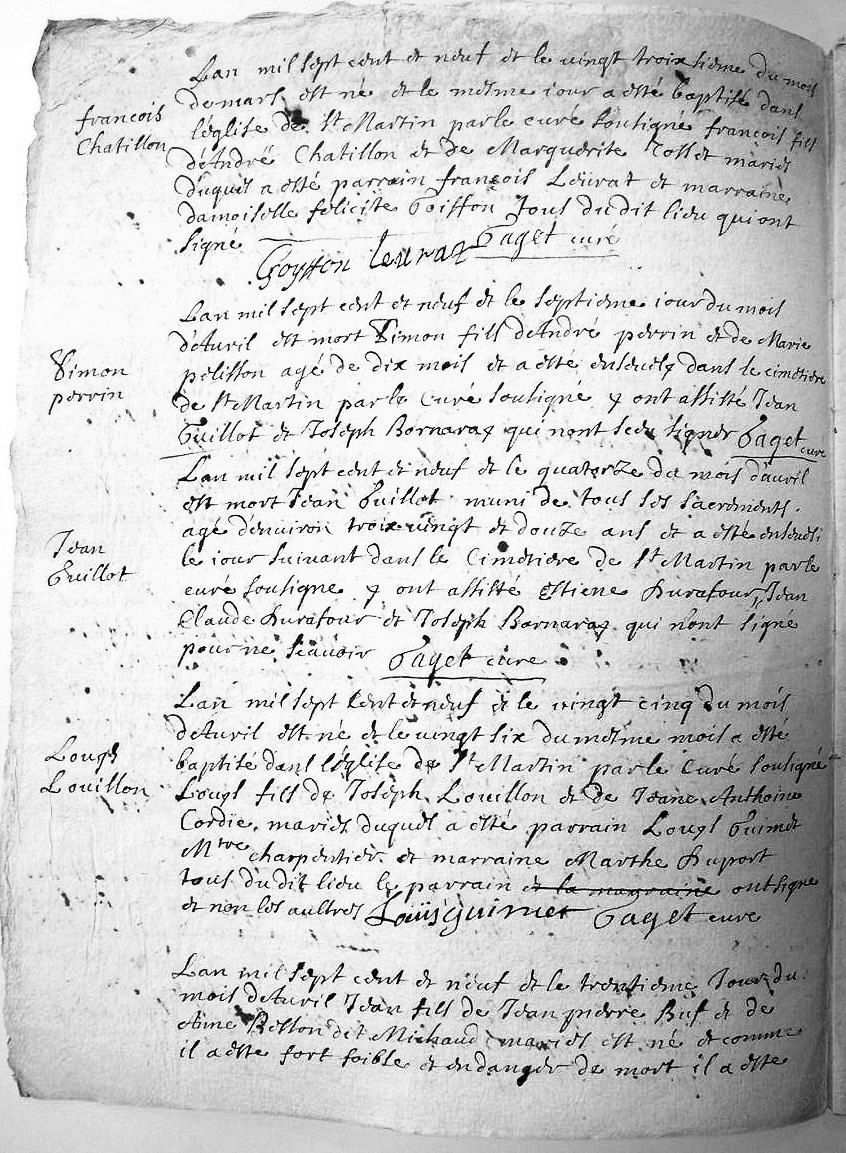 Lan mil sept cent et neuf et le vingt troixsieme du mois
francois
Chatillon
de mars est né et le mesme iour a esté baptisé dans
l'église de St Martin par le curé soutigné francois fils
d'André Chatillon et de Marguerite Tosset mariés
duquel a esté parrain francois Leurat et marraine
damoiselle felicite Goiffon tous du dit lieu qui ont
signé Goyffon leurat Gaget curé
Lan mil sept cent et neuf et le septieme iour du mois
d'Auril est mort Simon fils d'André perrin et de Marie
Simon
perrin
pelisson agé de dix mois et a esté enseuely dans le cimetiere
de St Martin par le Curé soutigné y ont assisté Jean
Guillot et Joseph Bornaraz qui nont sceu signer Gaget cure
Lan mil sept cent et neuf et le quatorze du mois d'auril
est mort Jean Guillot muni de tous ses sacrements
agé d'enuiron troix vingt et douze ans et a esté enseueli
Jean
Guillot
le iour suiuant dans le Cimetiere de St Martin par le
curé soutigne y ont assisté Estiene Durafour, Jean
Claude Durafour et Joseph Bornaraz qui n'ont signé
pour ne scauoir Gaget cure
Lan mil sept Cent et neuf et le vingt cinq du mois
d'Auril est né et le vingt six du mesme mois a esté
Lougs
Louillon
baptisé dans l'église de St Martin par le Curé soutigné
Lougs fils de Joseph Louillon et de Jeane Anthoine
Cordie mariés duquel a esté parrain Lougs Guimet
Mtre charpentier et marraine Marthe Duport
tous du dit lieu le parrain et la marraine ont signe
et non les aultres Louïs guimet Gaget cure
Lan mil sept cent et neuf et le trentieme Jour du
mois d'Auril Jean fils de Jean pierre Buf et de
Beston dit Michaud mariés est né et comme
il a este fort foible et en danger de mort il a este